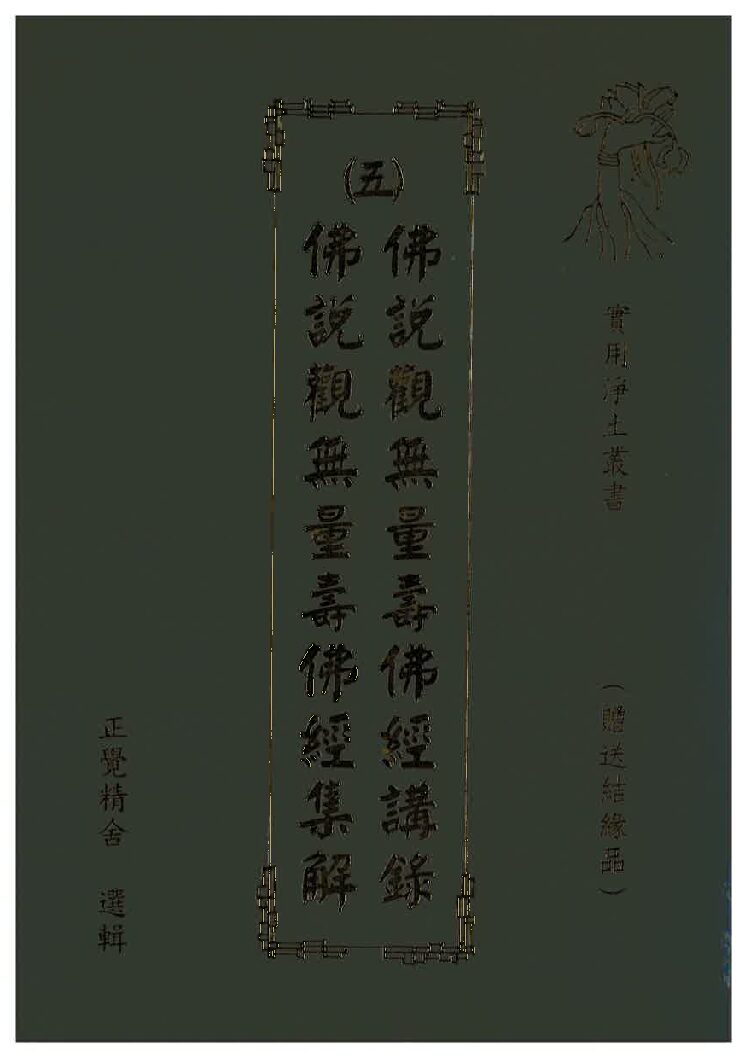 實用淨土叢書
（贈送結緣品）
(五)
佛說觀無量壽佛經講錄
佛說觀無量壽佛經集解
正覺精舍 選輯